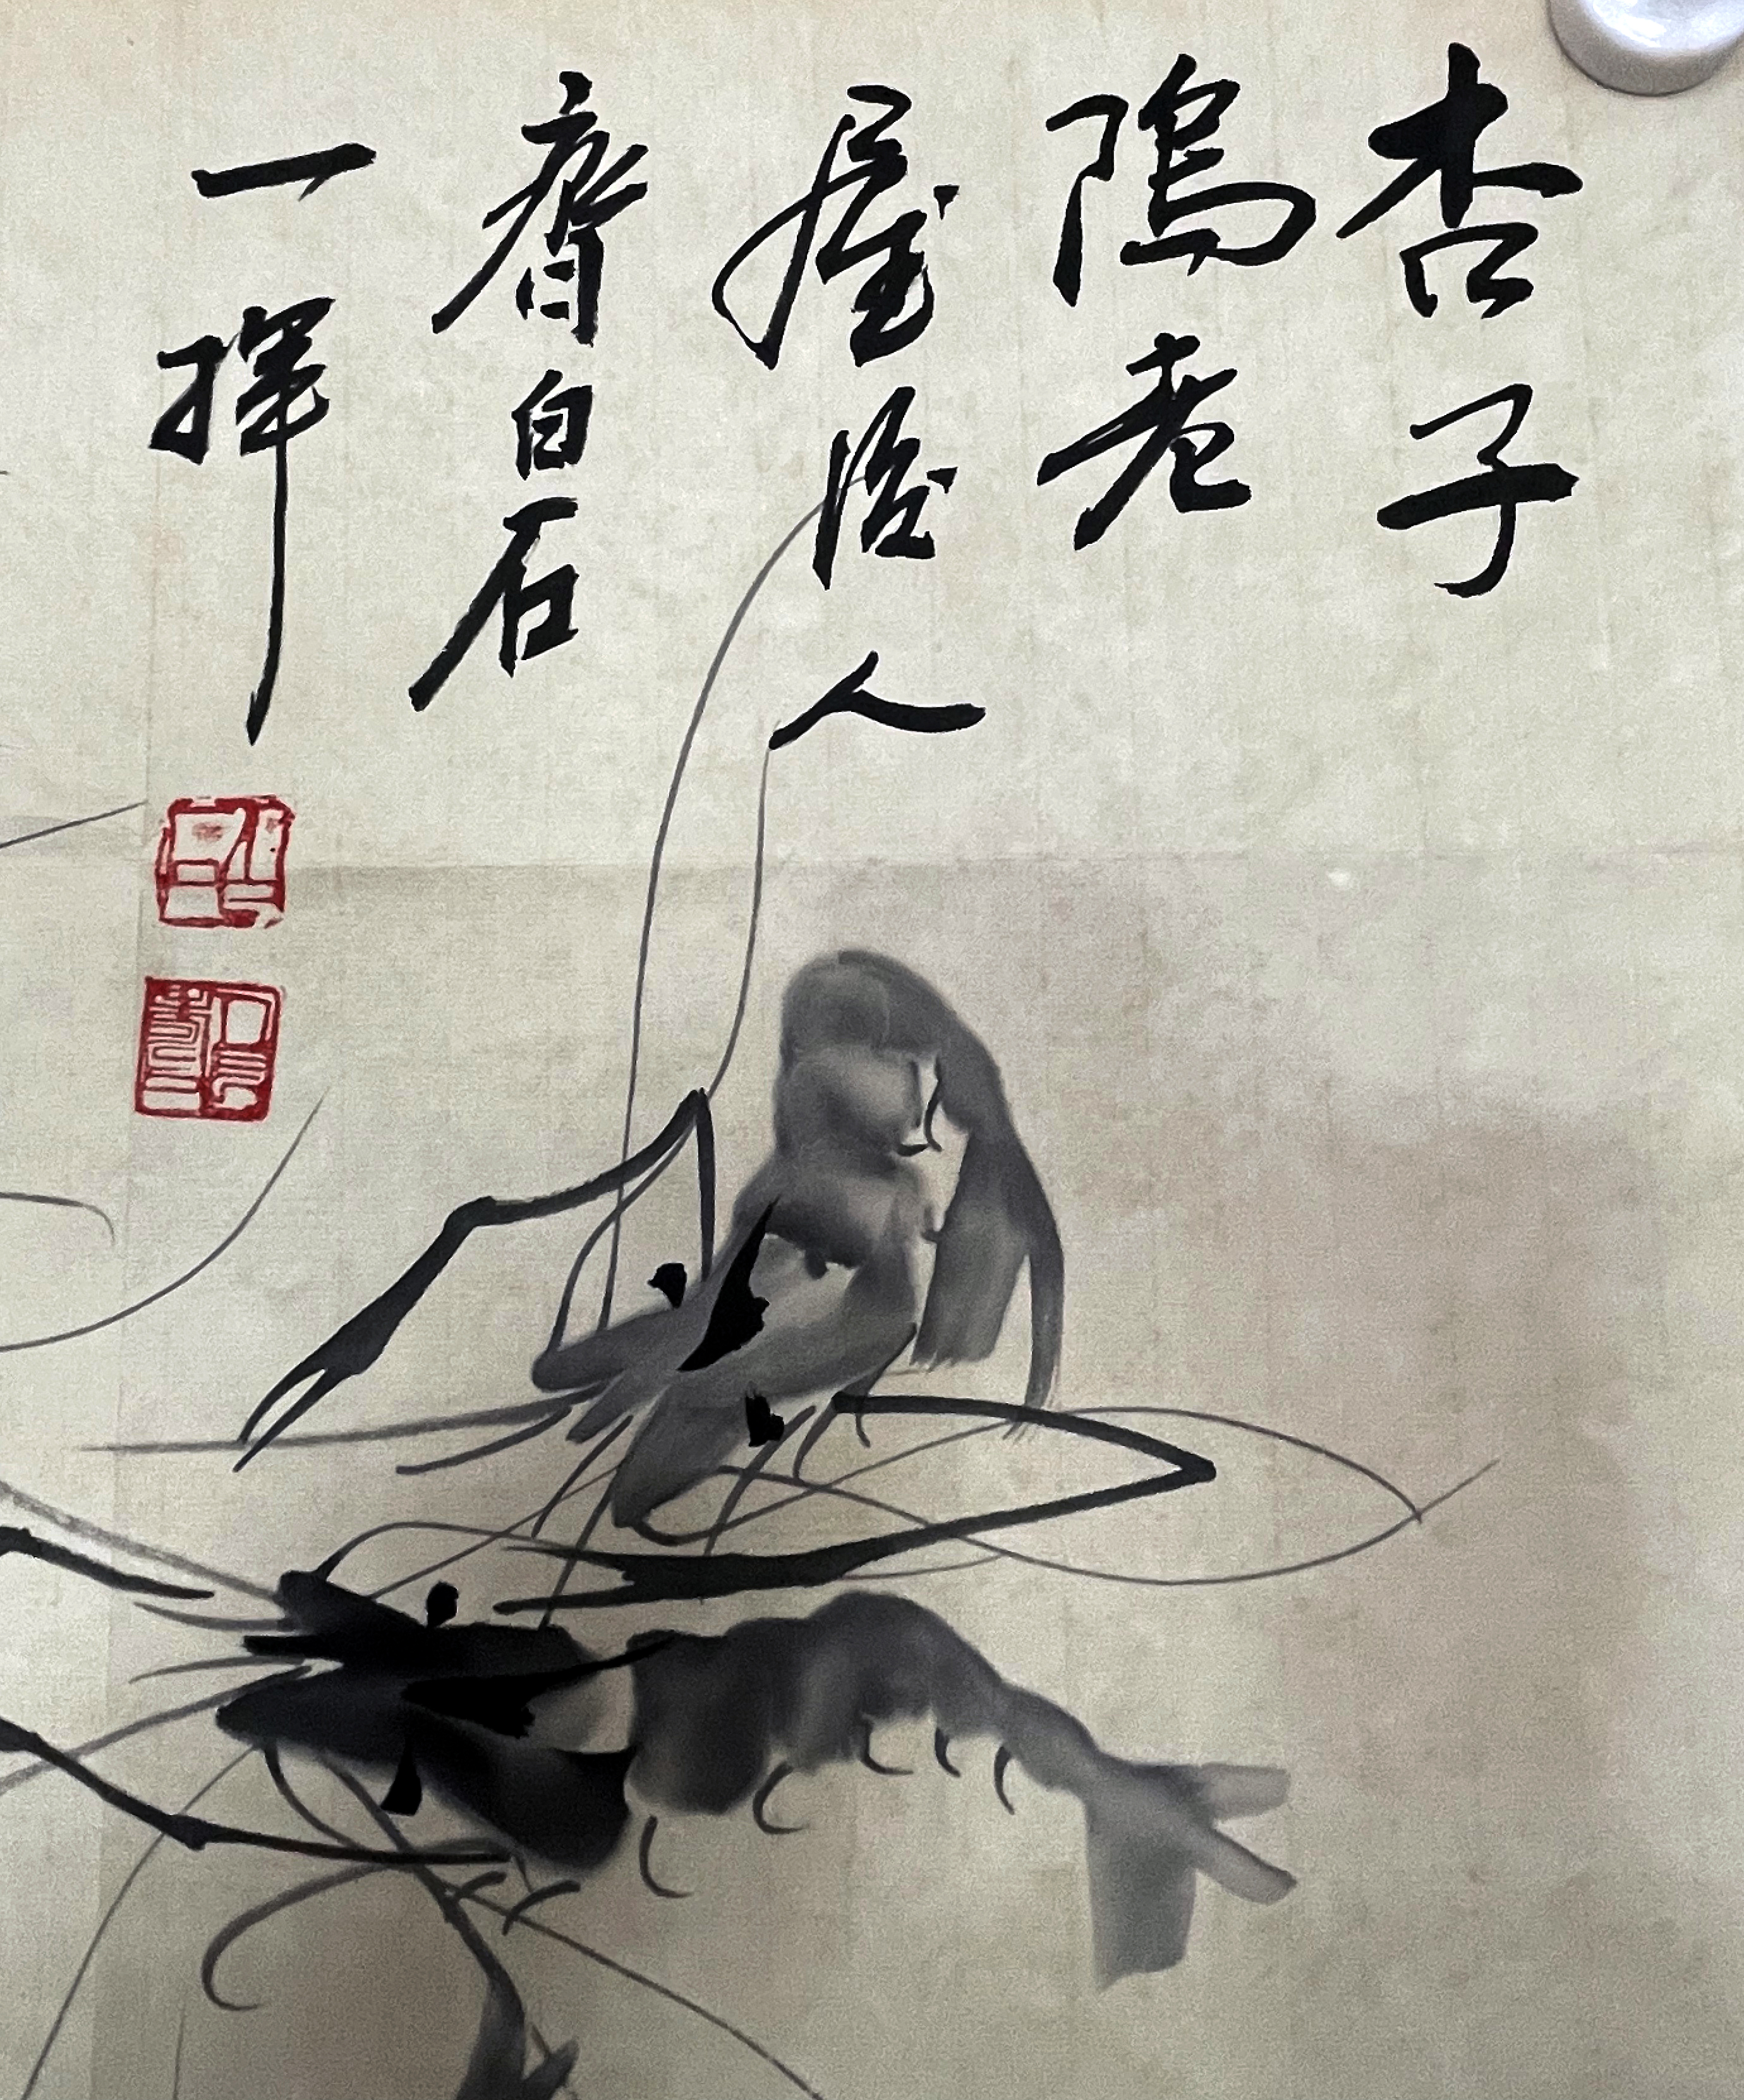 杏子
隖老
屋後人
齊白石
一揮